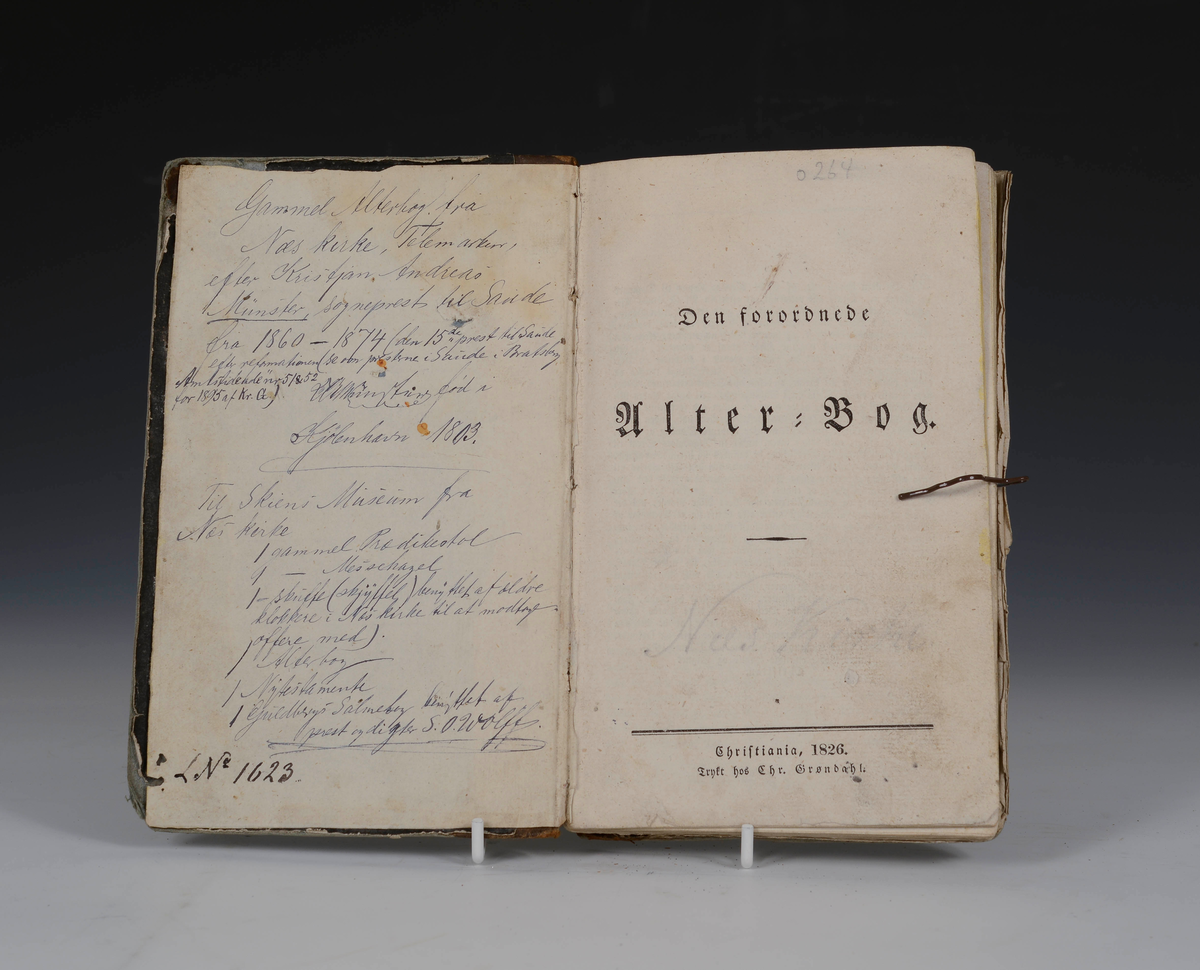 Gammel Alterbog fra
Næs kirke, Telemarken,
efter Kristjan Andreas
Münster, sogneprest til Saude
fra 1860 – 1874 (den 15de prest til Saude
efter reformationen (se om presterne i Saude i Bratsberg
Amtstidende nr 51 & 52
for 1895 af Kr. G.) Münster fød i
Kjöbenhavn 1803.
Til Skiens Museum fra
Næs kirke
1 gammel Prædikestol
1 — Messehagel
1 — skuffe (skyffel) benyttet af ældre
klokkere i Næs kirke til at modtage
offere med).
1 Alterbog
1 Nytestamente
1 Guldbergs Salmebog benyttet af
prest og digter S. O. Wolff.
L No 1623.
0264
Den forordnede
Alter=Bog.
Christiania, 1826.
Trykt hos Chr. Grøndahl.